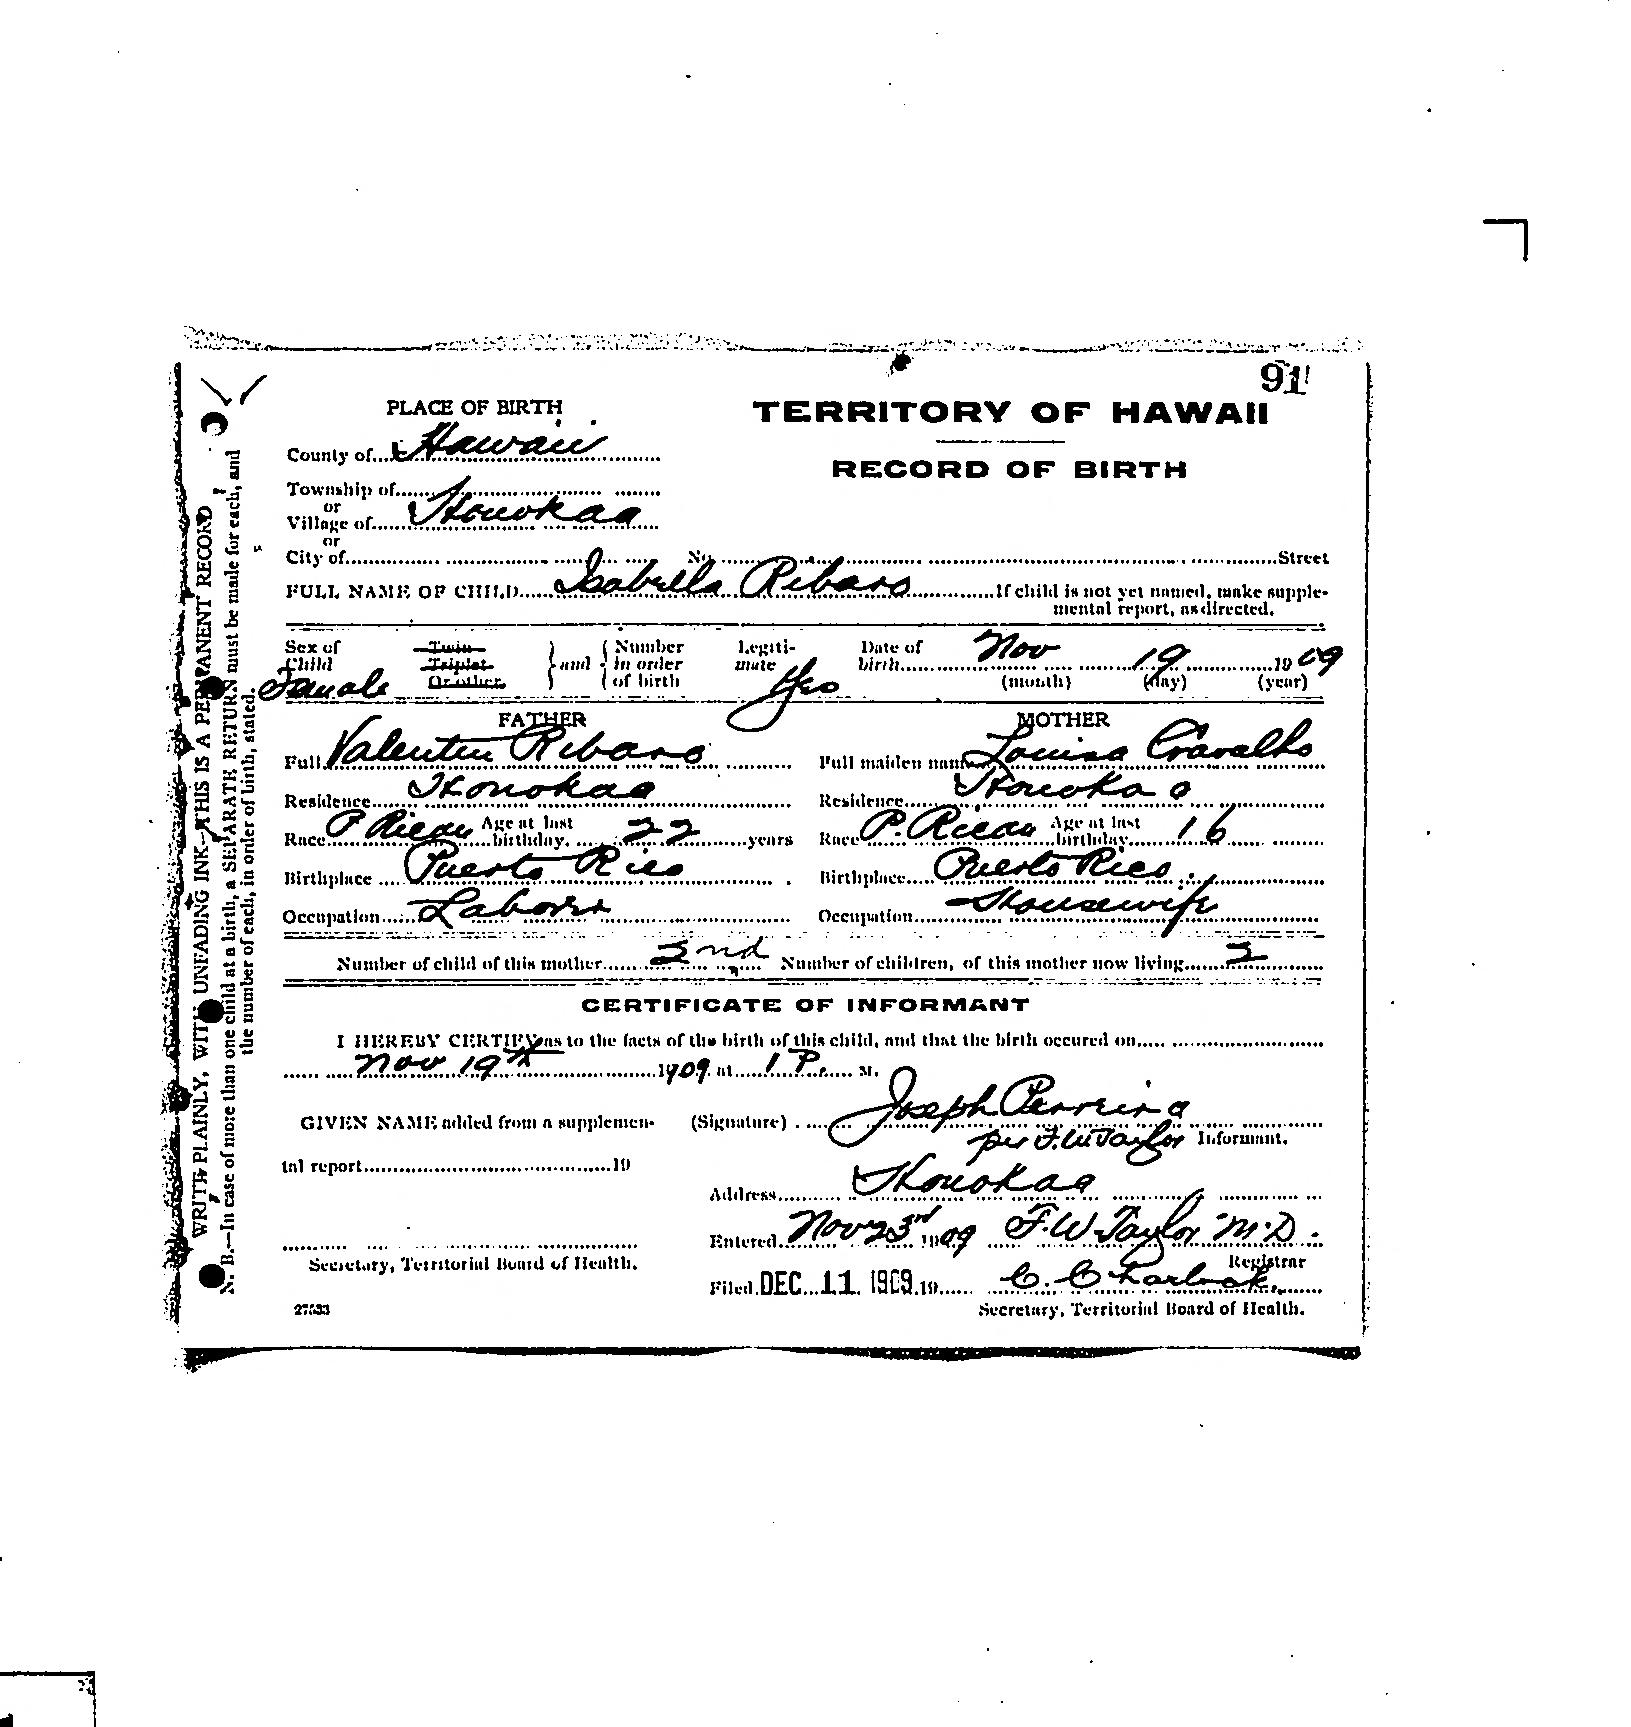 91
PLACE OF BIRTH
TERRITORY OF HAWAII
County of Hawaii
RECORD OF BIRTH
Township of
or
Village of Honokaa
or
City of No. Street
FULL NAME OF CHILD Isabella Ribaro If child is not yet named, make supple-
mental report, as directed.
Sex of Child Female Twin Triplet Or other } and { Number in order of birth Legiti-mate Yes Date of birth Nov 19 1909
(month) (day) (year)
FATHER
MOTHER
Full Valentin Ribaro Full maiden name Louisa Cravalho
Residence Honokaa Residence Honokaa
Race P Rican Age at last birthday. 22 years Race P. Rican Age at last birthday 16
Birthplace Puerto Rico Birthplace Puerto Rico
Occupation Laborer Occupation Housewife
Number of child of this mother 2nd Number of children, of this mother now living 2
CERTIFICATE OF INFORMANT
I HEREBY CERTIFY as to the facts of the birth of this child, and that the birth occured on
Nov 19th 1909 at 1 P. M.
GIVEN NAME added from a supplemen- (Signature) Joseph Perreira
per F.W Taylor Informant.
tal report 19
Address Honokaa
Entered Nov 23rd 1909 F. W. Taylor M.D.
Secretary, Territorial Board of Health. Registrar
Filed DEC 11 1909 19 C. Charlock.
27533 Secretary, Territorial Board of Health.
WRITE PLAINLY, WITH UNFADING INK—THIS IS A PERMANENT RECORD
N. B.—In case of more than one child at a birth, a SEPARATE RETURN must be made for each, and
the number of each, in order of birth, stated.